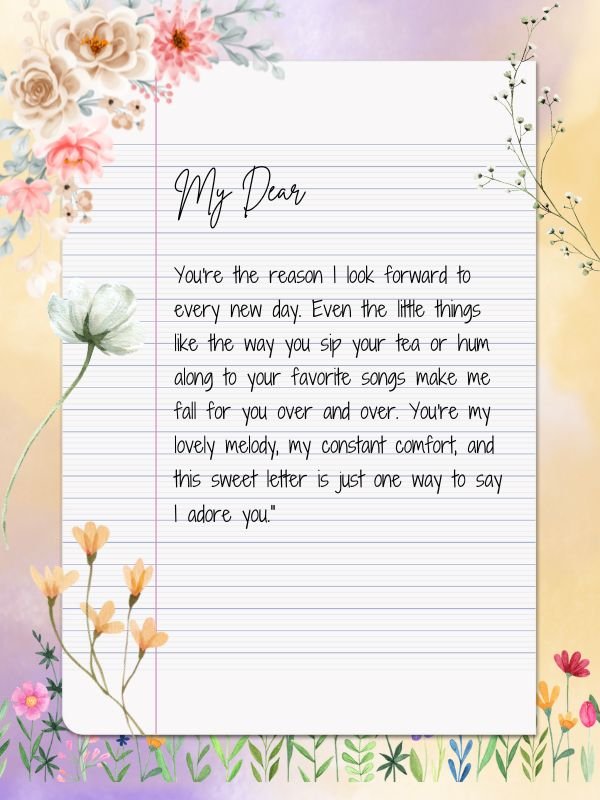 My Dear
You're the reason I look forward to
every new day. Even the little things
like the way you sip your tea or hum
along to your favorite songs make me
fall for you over and over. You're my
lovely melody, my constant comfort, and
this sweet letter is just one way to say
I adore you."